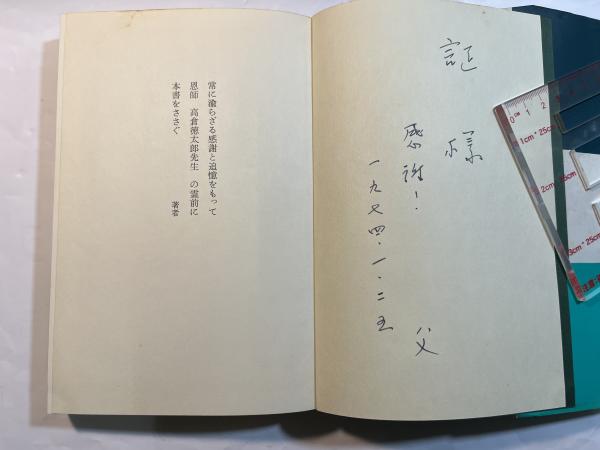 証 様
感謝！
一九七四・一・二五
父
常に渝らざる感謝と追憶をもって
恩師 高倉徳太郎先生 の霊前に
本書をささぐ
著者
0cm 1 2
1cm*25cm
2cm*25cm
3cm*25cm